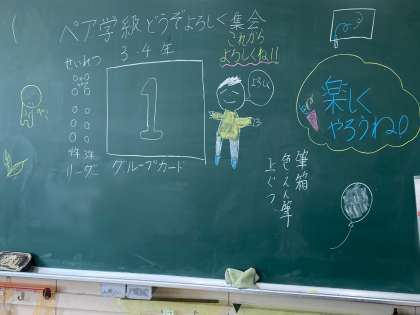 ペア学級どうぞよろしく集会
3.4年
これから
よろしくね!!
せいれつ
1
グループカード
リーダー
楽しく
やろうね♪
筆箱
色えん筆
上ぐつ